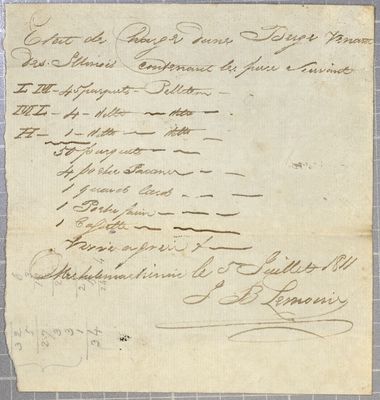 Etat de Charge dune Barge Venant
des Illinois Contenant les piece Suivante
L M - 45 paquets - Pelletri -
ML - 4 - ditto - ditto -
H - 1 - ditto - ditto
50 paquets - - -
4 poche - - -
1 - - -
1 Poche - - -
1 Cassette - - -
agrei &
Michilimackinac le 5 Juillet 1811
J B Lemoine